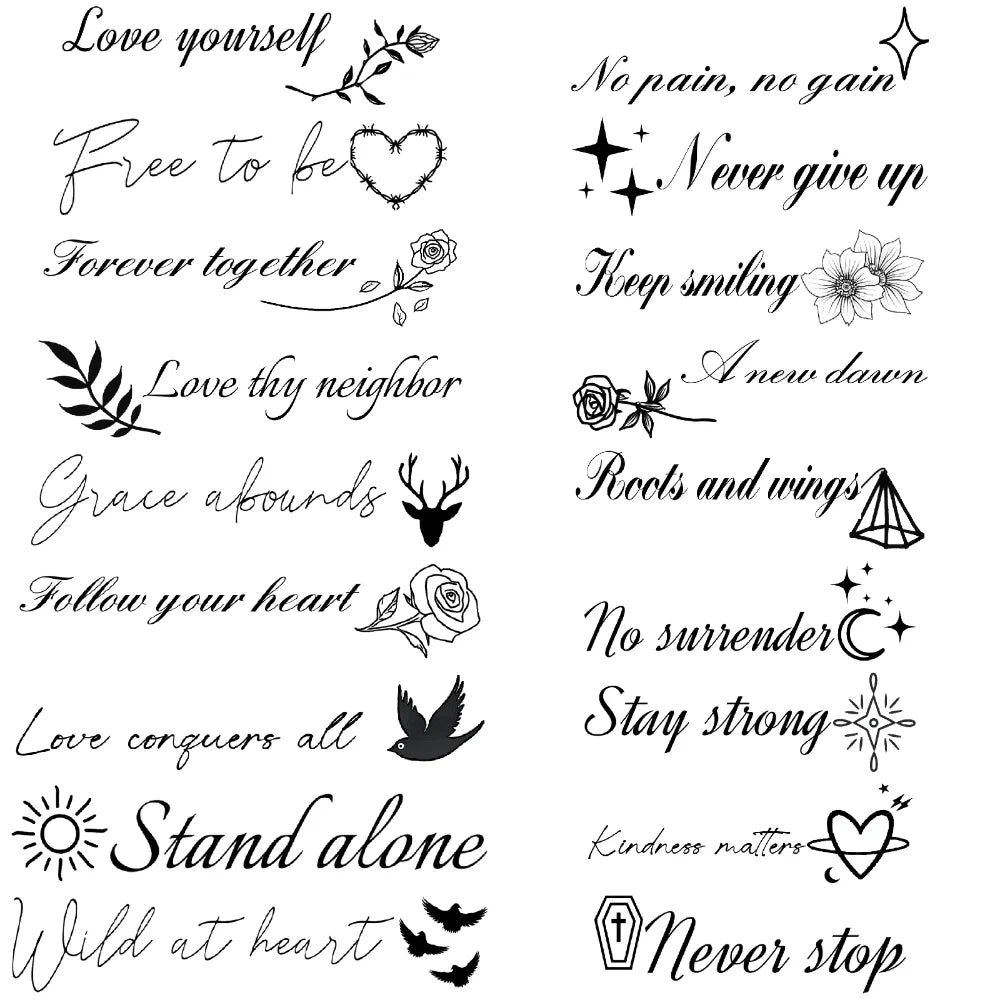 Love yourself
Free to be
Forever together
Love thy neighbor
Grace abounds
Follow your heart
Love conquers all
Stand alone
Wild at heart
No pain, no gain
Never give up
Keep smiling
A new dawn
Roots and wings
No surrender
Stay strong
Kindness matters
Never stop